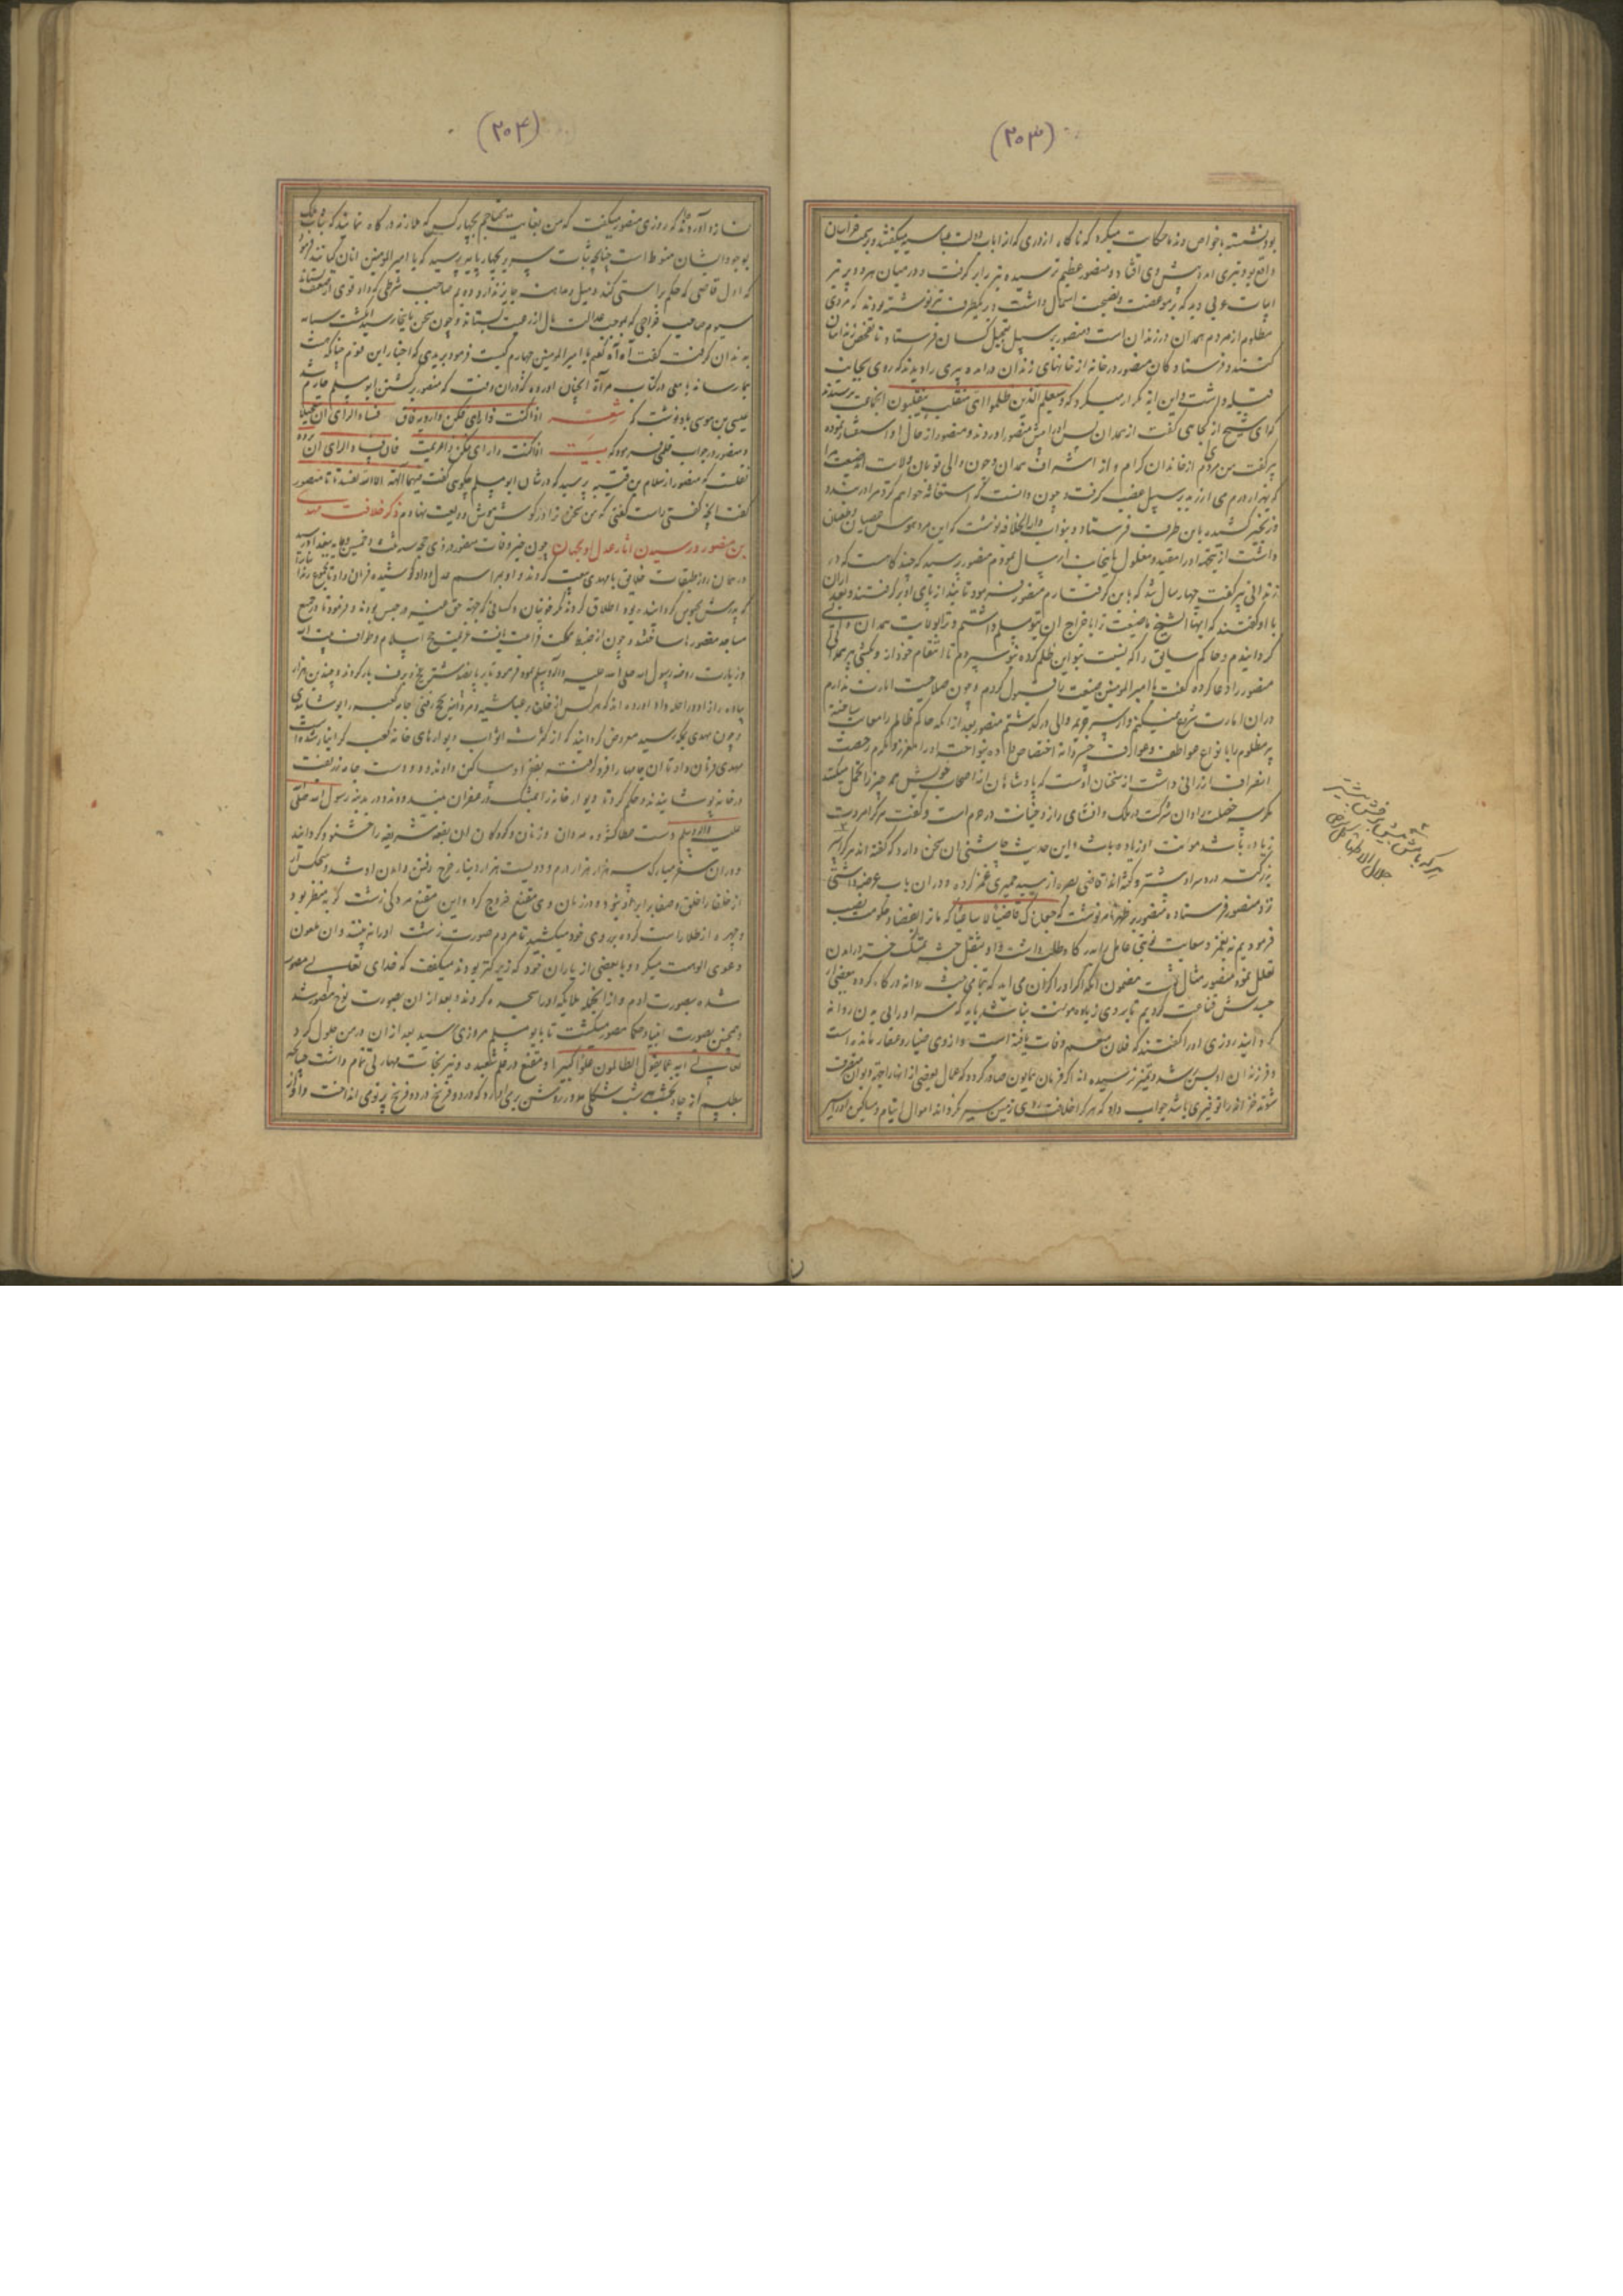 (۲۰۳)
بود نشسته با خواص و ندما حکایت میکرد که ناگاه از دری که از ابواب دولت عباسیه میگفتند و بر سمت خراسان
واقع بود تیری امد و پیش وی افتاد و منصور عظیم ترسیده تیر را بر گرفت و در میان هر دو پر تیر
ابیات عربی دید که بر موعظت و نصیحت اشتمال داشت و بر یکطرف تیر نوشته بودند که مردی
مظلوم از مردم همدان در زندان است و منصور بر سبیل تعجیل کسان فرستاد تا تفحص زندانیان
کنند و فرستادگان منصور در خانه از خانهای زندان در امده پیری را دیدند که روی بجانب
قبله داشت و این ایه تکرار میکرد که وسیعلم الذین ظلموا ای منقلب ینقلبون انجماعت پرسیدند
که ای شیخ از کجایی گفت از همدان پس او را پیش منصور اوردند و منصور از حال او استفسار نموده
پیر گفت من مردی ام از خاندان کرام و از اشراف همدان و چون والی تو بان ولایت امد ضیعت مرا
که بهزار درم می ارزید بر سبیل غصب گرفت و چون دانست که استغاثه خواهم کرد مرا در
زنجیر کشیده باین طرف فرستاد و بنواب دارالخلافه نوشت که این مرد هوس عصیان و طغیان
داشت از اینجهة او را مقید و مغلول بانجانب ارسال نمودم منصور پرسید که چند گاهست که در
زندانی پیر گفت چهار سال شد که باین گرفتارم منصور فرمود تا بند از پای او بر گرفتند و بعد از ان
با او گفتند که ایها الشیخ ما ضیعت ترا با خراج ان بتو مسلم داشتیم و ترا بولایت همدان والی
گردانیدم و حاکم سابق را که نسبت بتو این ظلم کرده بتو سپردم تا انتقام خود از وی بکشی پیر همدانی
منصور را دعا کرده گفت یا امیر المومنین ضیعت را قبول کردم و چون صلاحیت امارت ندارم
دران امارت شروع نمیکنم و از سر جریمه والی در گذشتم منصور بعد از انکه حاکم ظالم را معاتب ساخته
پیر مظلوم را بانواع عواطف و عوارف خسروانه اختصاص داده بنواخت و او را معزز و مکرم رخصت
انصراف ارزانی داشت از سخنان اوست که پادشاهان از اصحاب خویش همه چیز را تحمل میکنند
مگر سه خصلت را و ان شرکت در ملک و افشای راز و خیانت در حرم است و گفت هر کرا مروت
زیاده باشد موانت او زیاده باشد و این حدیث چاشنی ان سخن دارد که گفته اند هر کرا سر
بزرگتر درد سر او بیشتر و گفته اند قاضی بصره از سید حمیری غمز کرده و دران باب عرضه داشتی
نزد منصور فرستاده منصور بر ظهر نامه نوشت که جعلناک قاضیا لا ساعیا که ما از ابقضا و حکومت نصب
فرمودیم نه بغمز و سعایت نوبتی عاملی را بدرگاه طلب داشت و او بثقل جثه متمسک شده در امدن
تعلل نمود منصور مثال نوشت مضمون انکه اگر او را گران می اید که بتمامی جثه روانه درگاه گردد ببعضی از
جسدش قناعت کردیم تا بر وی زیاده موونت نباشد باید که سر او را بی بدن روانه
گردانید روزی او را گفتند که فلان متنعم وفات یافته است و از وی ضیاع و عقار مانده است
و فرزندان او بسن رشد و تمیز نرسیده اند اگر فرمان همایون صادر گردد که عمال بعضی از انها را جهة دیوان متصرف
شوند خزانه را توفیری باشد جواب داد که هر کرا خلافت روی زمین سیر نگرداند اموال ایتام و مساکین او را سیر
هر که با
(۲۰۴)
نسازد و آورده اند که روزی منصور میگفت که من بغایت محتاجم بچهار کس که ملازم درگاه نمایند که ثبات ملک
بوجود ایشان منوط است چنانچه ثبات سریر بچهار پایه پرسیدند که یا امیر المومنین انان کیانند فرمود
که اول قاضی که حکم براستی کند و میل و مداهنه جایز ندارد دویم صاحب شرطی که داد قوی از ضعیف بستاند
سیوم صاحب خراجی که بموجب عدالت مال از رعیت بستاند و چون سخن باینجا رسید انگشت سبابه
بدندان گرفت گفت آه آه گفتیم یا امیر المومنین چهارم کیست فرمود بریدی که اخبار این قوم چنانکه هست
بما رساند یافعی در کتاب مرآة الجنان اورده که دران وقت که منصور بر کشتن ابو مسلم جازم شد
عیسی بن موسی بدو نوشت که شعر اذا کنت ذا رای فکن ذا رویة فان فساد الرای ان تعجلا
و منصور در جواب قلمی فرمود که بیت اذا کنت ذا رای فکن ذا عزیمة فان فساد الرای ان
نقلست که منصور از سلام بن قتیبه پرسید که در شان ابو مسلم چگویی گفت لو کان فیهما آلهة الا الله لفسدتا منصور
گفت انچه گفتی راست گفتی که من سخن ترا در گوش هوش ودیعت نهادم ذکر خلافت مهدی
بن منصور و رسیدن اثار عدل او بجهان چون خبر وفات منصور در ذی حجه سنه ثمان و خمسین و مایه ببغداد رسید
در همان روز طبقات خلایق با مهدی بیعت کردند و او بمراسم عدل و داد کوشیده فرمان داد تا مجموع زندانیان را
که پدرش محبوس گردانیده بود اطلاق کردند مگر خونیان و کسانی که جهة حق غیر در حبس بودند و فرمود تا در جمیع
مساجد مقصورها ساختند و چون از ضبط مملکت فراغت یافت عزیمت حج اسلام و طواف بیت الله
و زیارت روضه رسول الله صلی الله علیه واله وسلم نموده فرمود تا بر پانصد شتر یخ و برف بار کردند و چندین هزار
پیاده را زاد و راحله داد اورده اند که هر کس از خلفا و عباسیه و امرا بنیت حج رفتی جامه کعبه را بپوشانیدی
و چون مهدی بمکه رسید معروض گردانیدند که از کثرت اثواب دیوارهای خانه کعبه گرانبار شده است
مهدی فرمان داد تا ان جامها را فرو گرفته بفقرا و مساکین دادند و دو دست جامه زربفت
در خانه پوشانیدند و حکم کرد تا دیوار خانه را بمشک و زعفران بیندودند و در مدینه رسول الله صلی
الله علیه واله وسلم دست عطا گشوده مردان و زنان و کودکان ان بقعه شریفه را خشنود گردانید
و دران سفر مبارک سه هزار هزار درم و دویست هزار دینار خرج رفتن و امدن او شد و هیچکس از
از خلفا را خلق و صفا برابر او نبود و در زمان وی مقنع خروج کرد و این مقنع مردکی زشت کریه منظر بود
و چهره از طلا راست کرده بر روی خود میکشید تا مردم صورت زشت او را نه بینند و ان ملعون
دعوی الوهیت میکرد و با بعضی از یاران خود که زیرکتر بودند میگفت که خدای تعالی مصور
شده بصورت ادم و از انجهة ملایکه او را سجده کردند و بعد از ان بصورت نوح مصور شد
و همچنین بصورت انبیا و حکما مصور میگشت تا بابو مسلم مروزی رسید بعد از ان در من حلول کرد
تعالی الله عما یقول الظالمون علوا کبیرا و مقنع در علم شعبده و نیرنجات مهارتی تمام داشت چنانکه